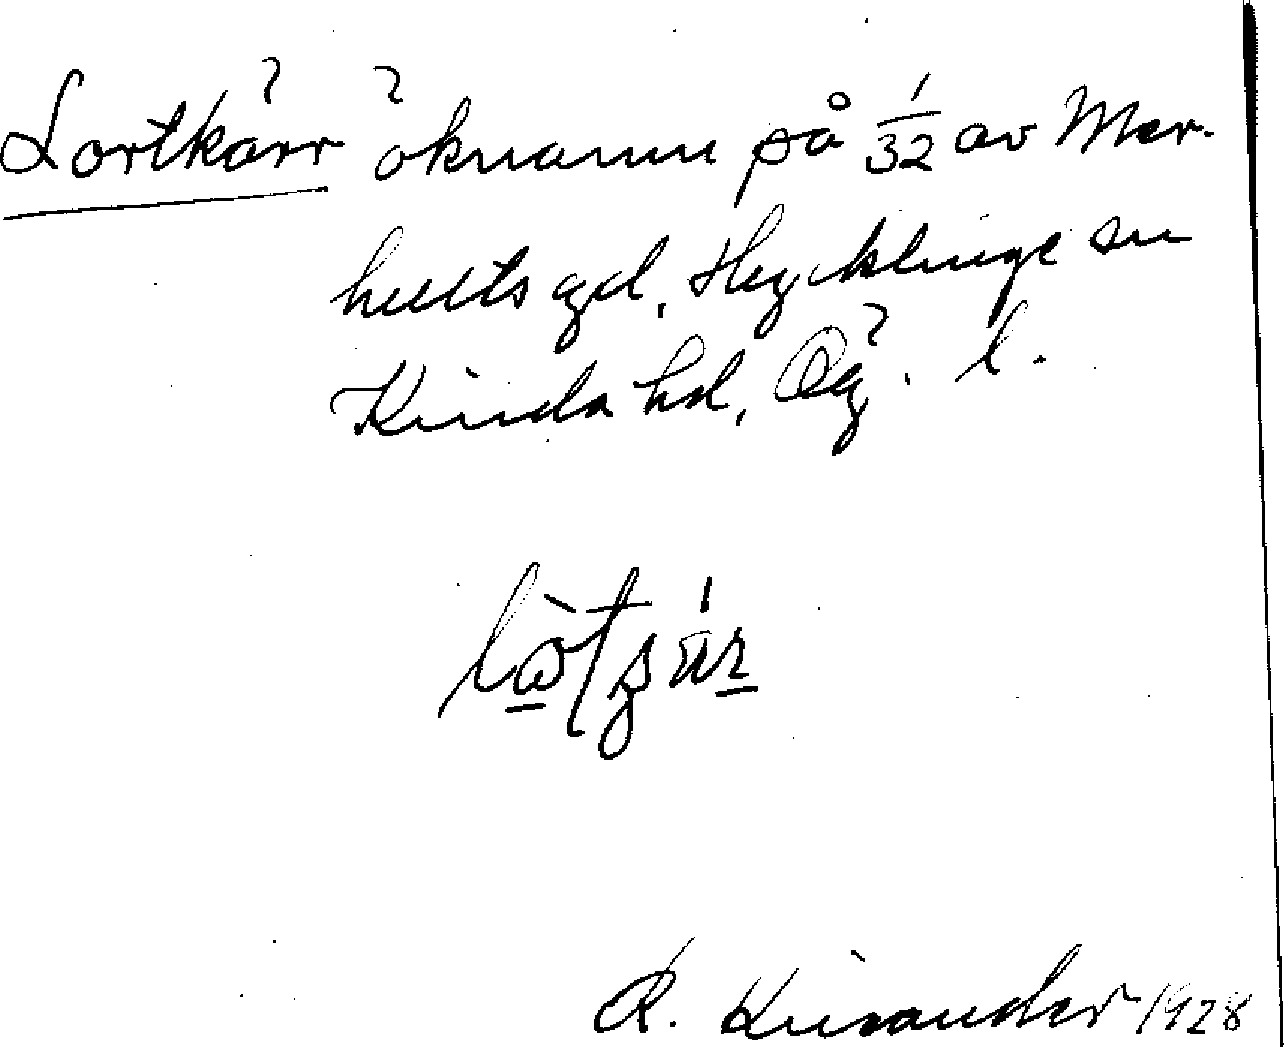 Lortkärr öknamn på 1/32 av Mer-
hults gd, Hycklinge sn
Kinda hd, Ög. l.
R. Kinander 1928